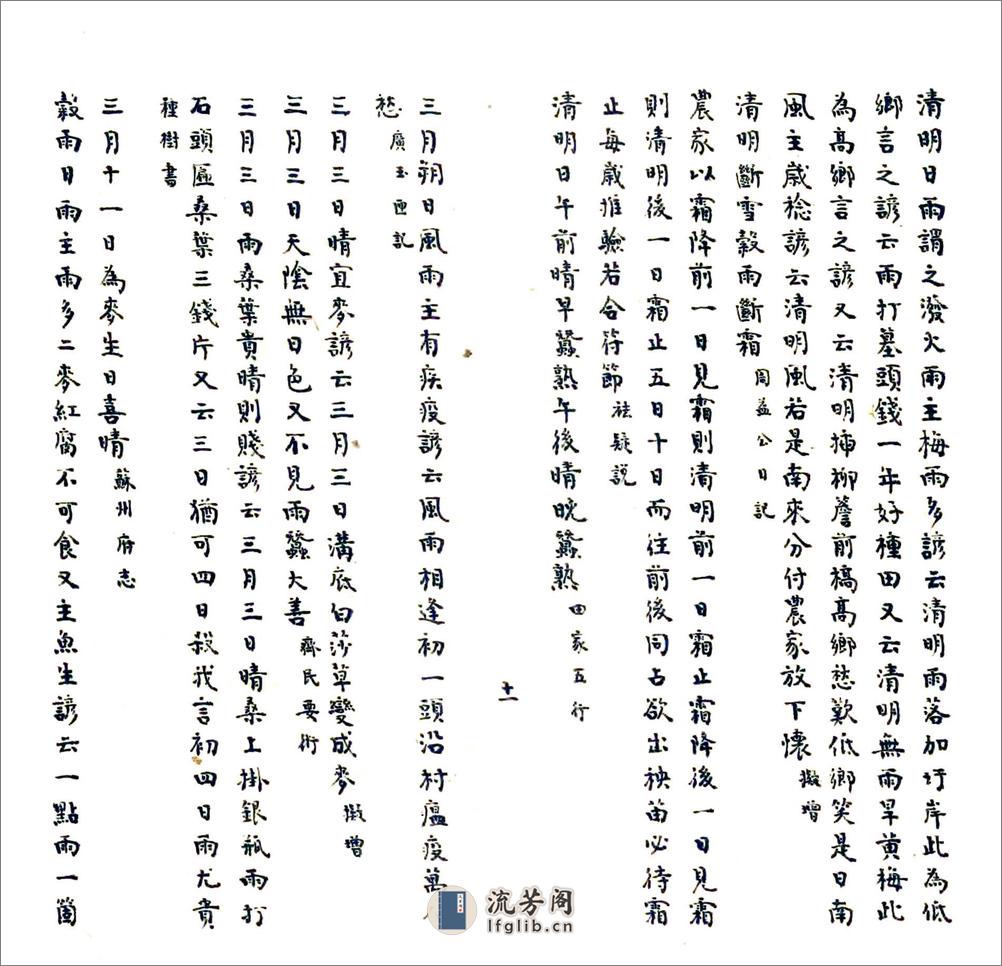 清明日雨謂之潑火雨主梅雨多諺云清明雨落加圩岸此為低
鄉言之諺云雨打墓頭錢一年好種田又云清明無雨旱黃梅此
為高鄉言之諺又云清明插柳簷前槁高鄉愁歎低鄉笑是日南
風主歲稔諺云清明風若是南來分付農家放下懷 擬增
清明斷雪穀雨斷霜 周益公日記
農家以霜降前一日見霜則清明前一日霜止霜降後一日見霜
則清明後一日霜止五日十日而往前後同占欲出秧苗必待霜
止每歲推驗若合符節 祛疑說
清明日午前晴早蠶熟午後晴晚蠶熟 田家五行
十一
三月朔日風雨主有疾疫諺云風雨相逢初一頭沿村瘟疫萬
愁 廣玉匣記
三月三日晴宜麥諺云三月三日溝底白莎草變成麥 擬增
三月三日天陰無日色又不見雨蠶大善 齊民要術
三月三日雨桑葉貴晴則賤諺云三月三日晴桑上掛銀瓶雨打
石頭匾桑葉三錢片又云三日猶可四日殺我言初四日雨尤貴
種樹書
三月十一日為麥生日喜晴 蘇州府志
穀雨日雨主雨多二麥紅腐不可食又主魚生諺云一點雨一箇
流芳阁
lfglib.cn